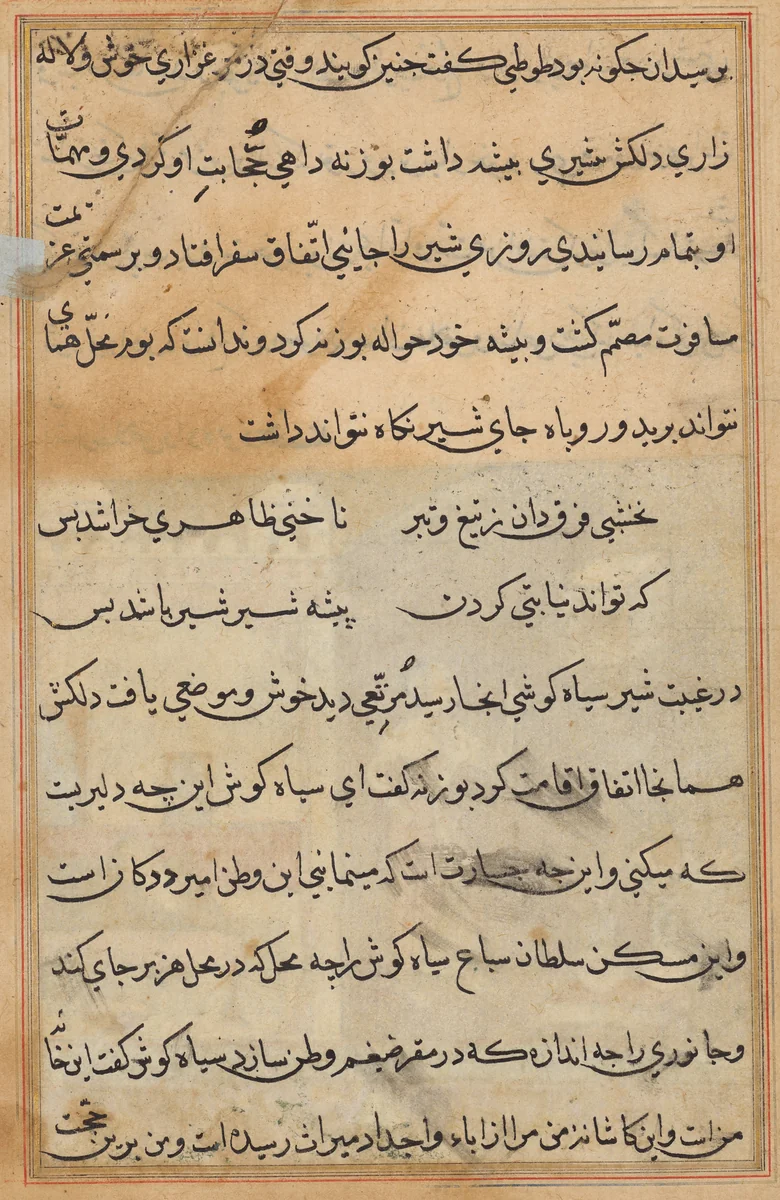 برسیدان جکونه بود طوطی کفت جنین کویند وقتی در مرغزاری خوش ولاله
زاری دلکش شیری بیشه داشت بوزنه داهی حُجّابتِ او کردی ومهمّات
او بتمام رسانیدی روزی شیر را جائی اتّفاق سفر افتاد و بر سمتی عزیمت
مسافرت مصمّم کشت و بیشه خود حواله بوزنه کرد و ندانست که بوم محلّ همای
نتواند برید و روباه جای شیر نکاه نتواند داشت
نخشبی فرق دان ز تیغ و تبر ناخنی ظاهری خراشد بس
که تواند نیابتی کردن پیشه شیر شیر باشد بس
در غیبت شیر سیاه کوشی انجا رسید مُرتّعی دید خوش و موضعی یافت دلکش
همانجا اتفاق اقامت کرد بوزنه کفت ای سیاه کوش این چه دلیریست
که میکنی و این جه جسارت است که مینمائی این وطن امیر ددکان است
و این مسکن سلطان سباع سیاه کوش را چه محل که در محل هزبر جای کند
وجانوری را جه اندازه که در مقر ضیغم وطن سازد سیاه کوش کفت این خانه
من است و این کاشانهٔ من مرا از اباء واجداد میراث رسیده است و من برین حجّت